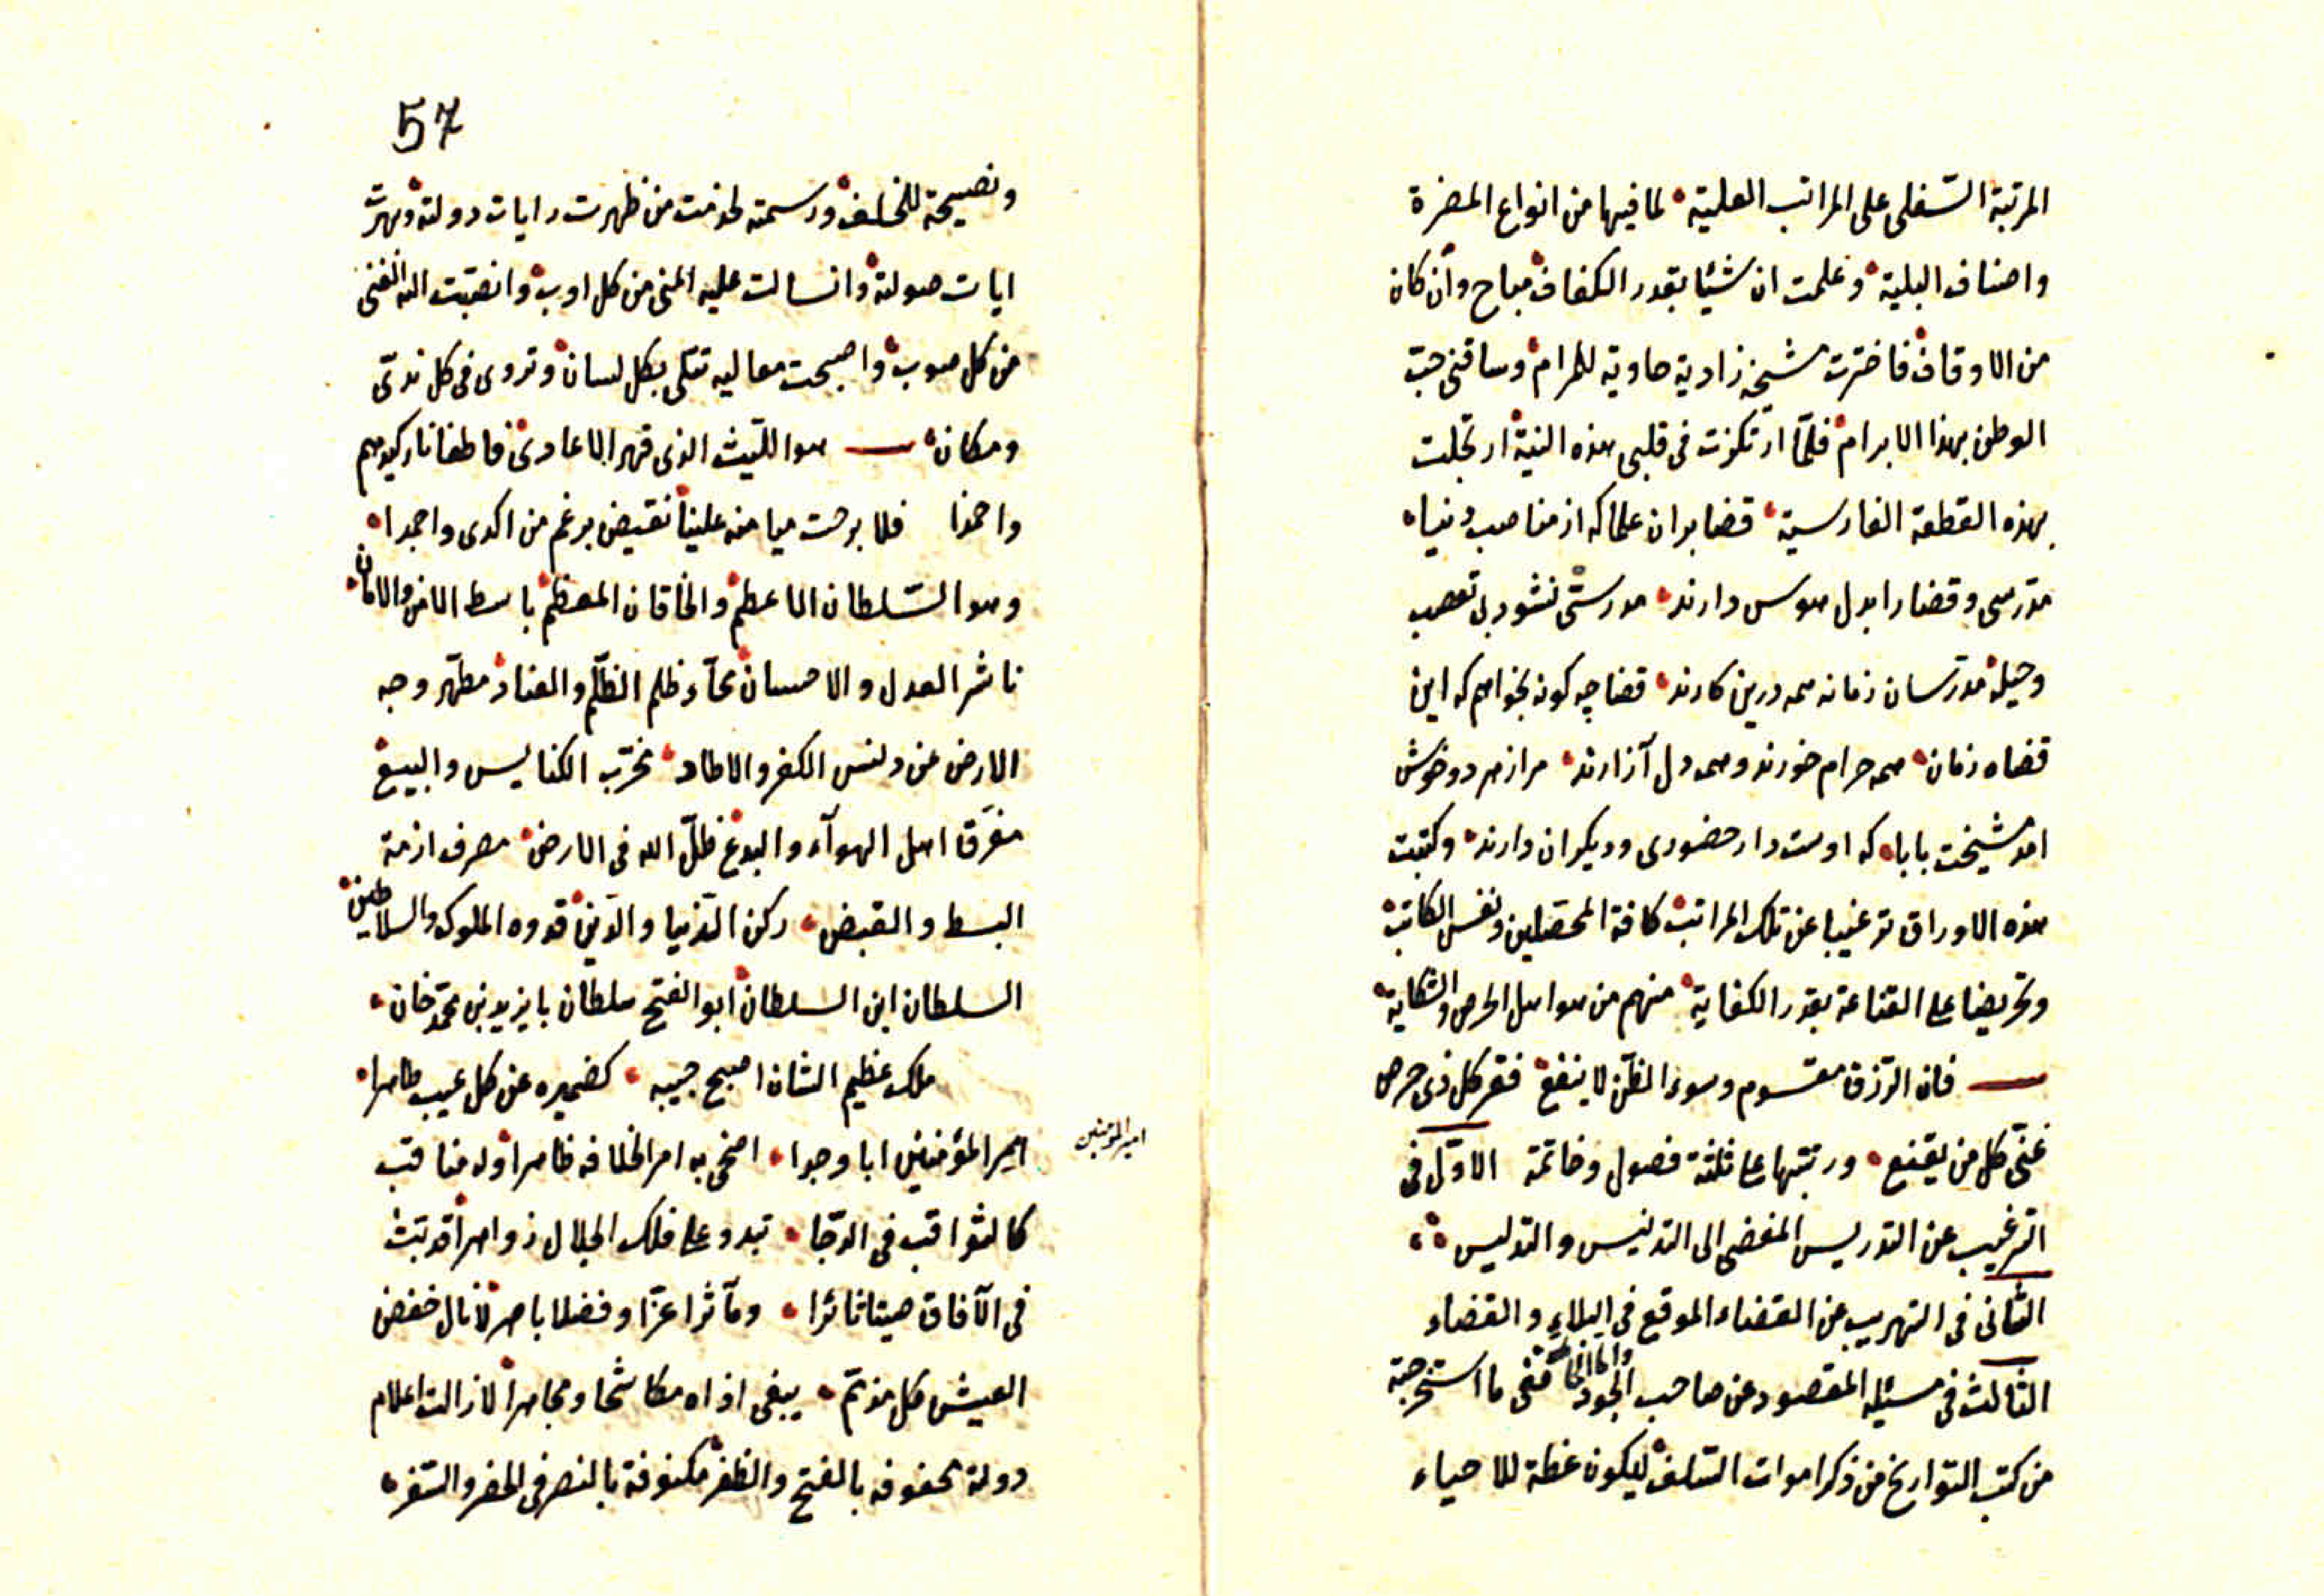 المرتبة السّفلى على المراتب العلية • لما فيها من انواع المضرة
واصناف البلية • وعلمت ان شيئا بقدر الكفاف مباح وان كان
من الاوقاف • فاخترت مشيخة زاوية حاوية للمرام • وساقنى حبّ
الوطن بهذا الابرام • فلمّا ارتكزت فى قلبى هذه النية ارتجلت
بهذه القطعة الفارسية • قضا بران علما كه از مناصب دنياه
مدرسى وقضا را بدل هوس دارند • مدرستى نشود بى تعصب
وحيله • مدرّسان زمانه همه درين كارند • قضا چه كونه بخواهم كه اين
قضاه زمان • همه حرام خورند وهمه دل آزارند • مرا ز هر دو خوش
امد مشيخت بابا • كه اوست دار حضورى وديكران دارند • وكتبت
هذه الاوراق ترغيبا عن تلك المراتب • كافة المحصّلين ونفس الكاتب •
وتحريضا على القناعة بقدر الكفاية • منهم من هو اهل الحرص والشكاية •
فان الرّزق مقسوم وسوء الظّن لا ينفع • فقر كل ذى حرص
غنىّ كل من يقنع • ورتبتها على ثلثة فصول وخاتمة الاوّل فى
الترغيب عن التدريس المفضى الى التدنيس والتدليس •
الثّانى فى الترهيب عن القضاء الموقع فى البلاء والقضاء
الثالث فى مسئلة المقصود عن صاحب الجود واما الخاتمة ففى ما استخرجته
من كتب التواريخ من ذكر اموات السّلف • ليكون عظة للاحياء
57
ونصيحة للخلف • ورسمته لخدمت من ظهرت رايات دولته وبهرت
ايات صولته • وانسالت عليه المنى من كل اوب • وانصبّت اليه الغنى
من كل صوب • واصبحت معاليه تتلى بكل لسان • وتروى فى كل ندىّ
ومكان • هو اللّيث الذى قهر الاعادى • فاطفا نار كيدهم
واخمدا فلا برحت ميامنه علينا تفيض برغم من اكدى واجمدا •
وهو السّلطان الاعظم • والخاقان المعظم • باسط الامن والامان •
ناشر العدل والاحسان • محّاء ظلم الظّلم والعناد • مطهّر وجه
الارض من دنس الكفر والالحاد • مخرّب الكنايس والبيع •
مفرّق اهل الهوآء والبدع • ظلّ الله فى الارض • مصرف ازمة
البسط والقبض • ركن الدّنيا والدّين • قدوه الملوك والسلاطين •
السلطان ابن السلطان • ابو الفتح سلطان بايزيد بن محمّد خان •
ملك عظيم الشان اصبح جيبه • كضميره عن كل عيب طاهرا •
امير المؤمنين
امير المؤمنين ابا وجدا • اضحى به امر الخلافه ظاهرا • وله مناقب
كالثواقب فى الدّجا • تبدو على فلك الجلال زواهرا • قد بثّ
فى الآفاق صيتا ثائرا • ومآثرا عزّا وفضلا باهرا • لا نال خفض
العيش كل مذمّم • يبغى اذاه مكاشحا ومجاهرا • لا زالت اعلام
دولته محفوفه بالفتح والظفر • مكنوفة بالنصر فى الحضر والسّفر •